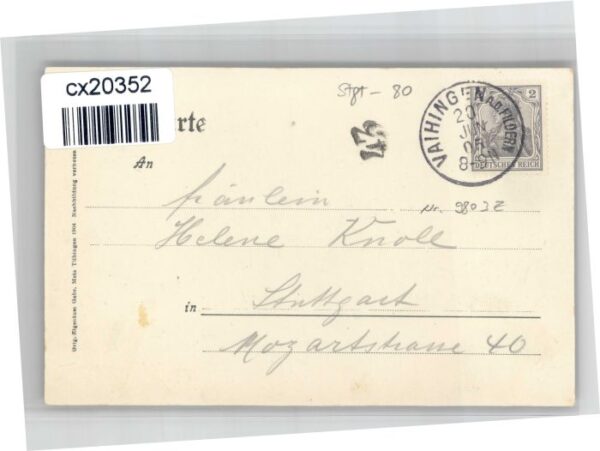 cx20352
Stgt - 80
VAIHINGEN A.D. FILDERN
20
JUN
05
8-9
2
DEUTSCHES REICH
arte
An
Fräulein
Nr. 9803Z
Helene Knoll
in Stuttgart
Mozartstrasse 40
Orig.-Eigentum Gebr. Metz Tübingen 1904 Nachbildung verboten